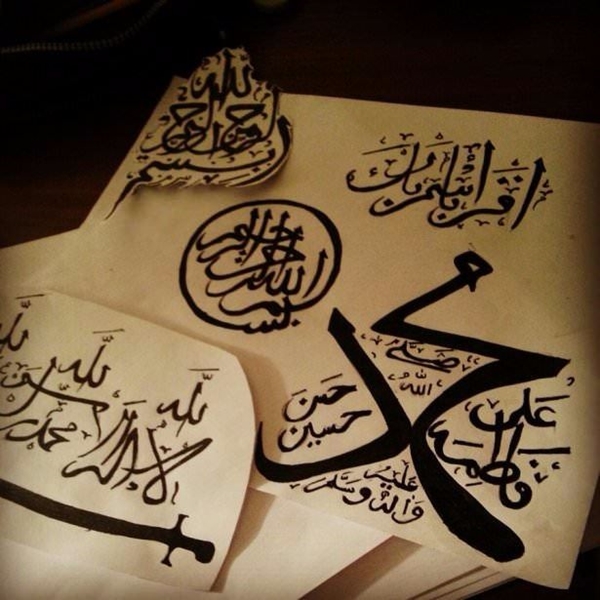 بسم الله الرحمن الرحيم
اقرا باسم ربك
بسم الله الرحمن الرحيم
محمد
صلى
الله
عليه
وآله وسلم
حسن
حسين
علي
فاطمة
لا إله إلا الله محمد رسول الله